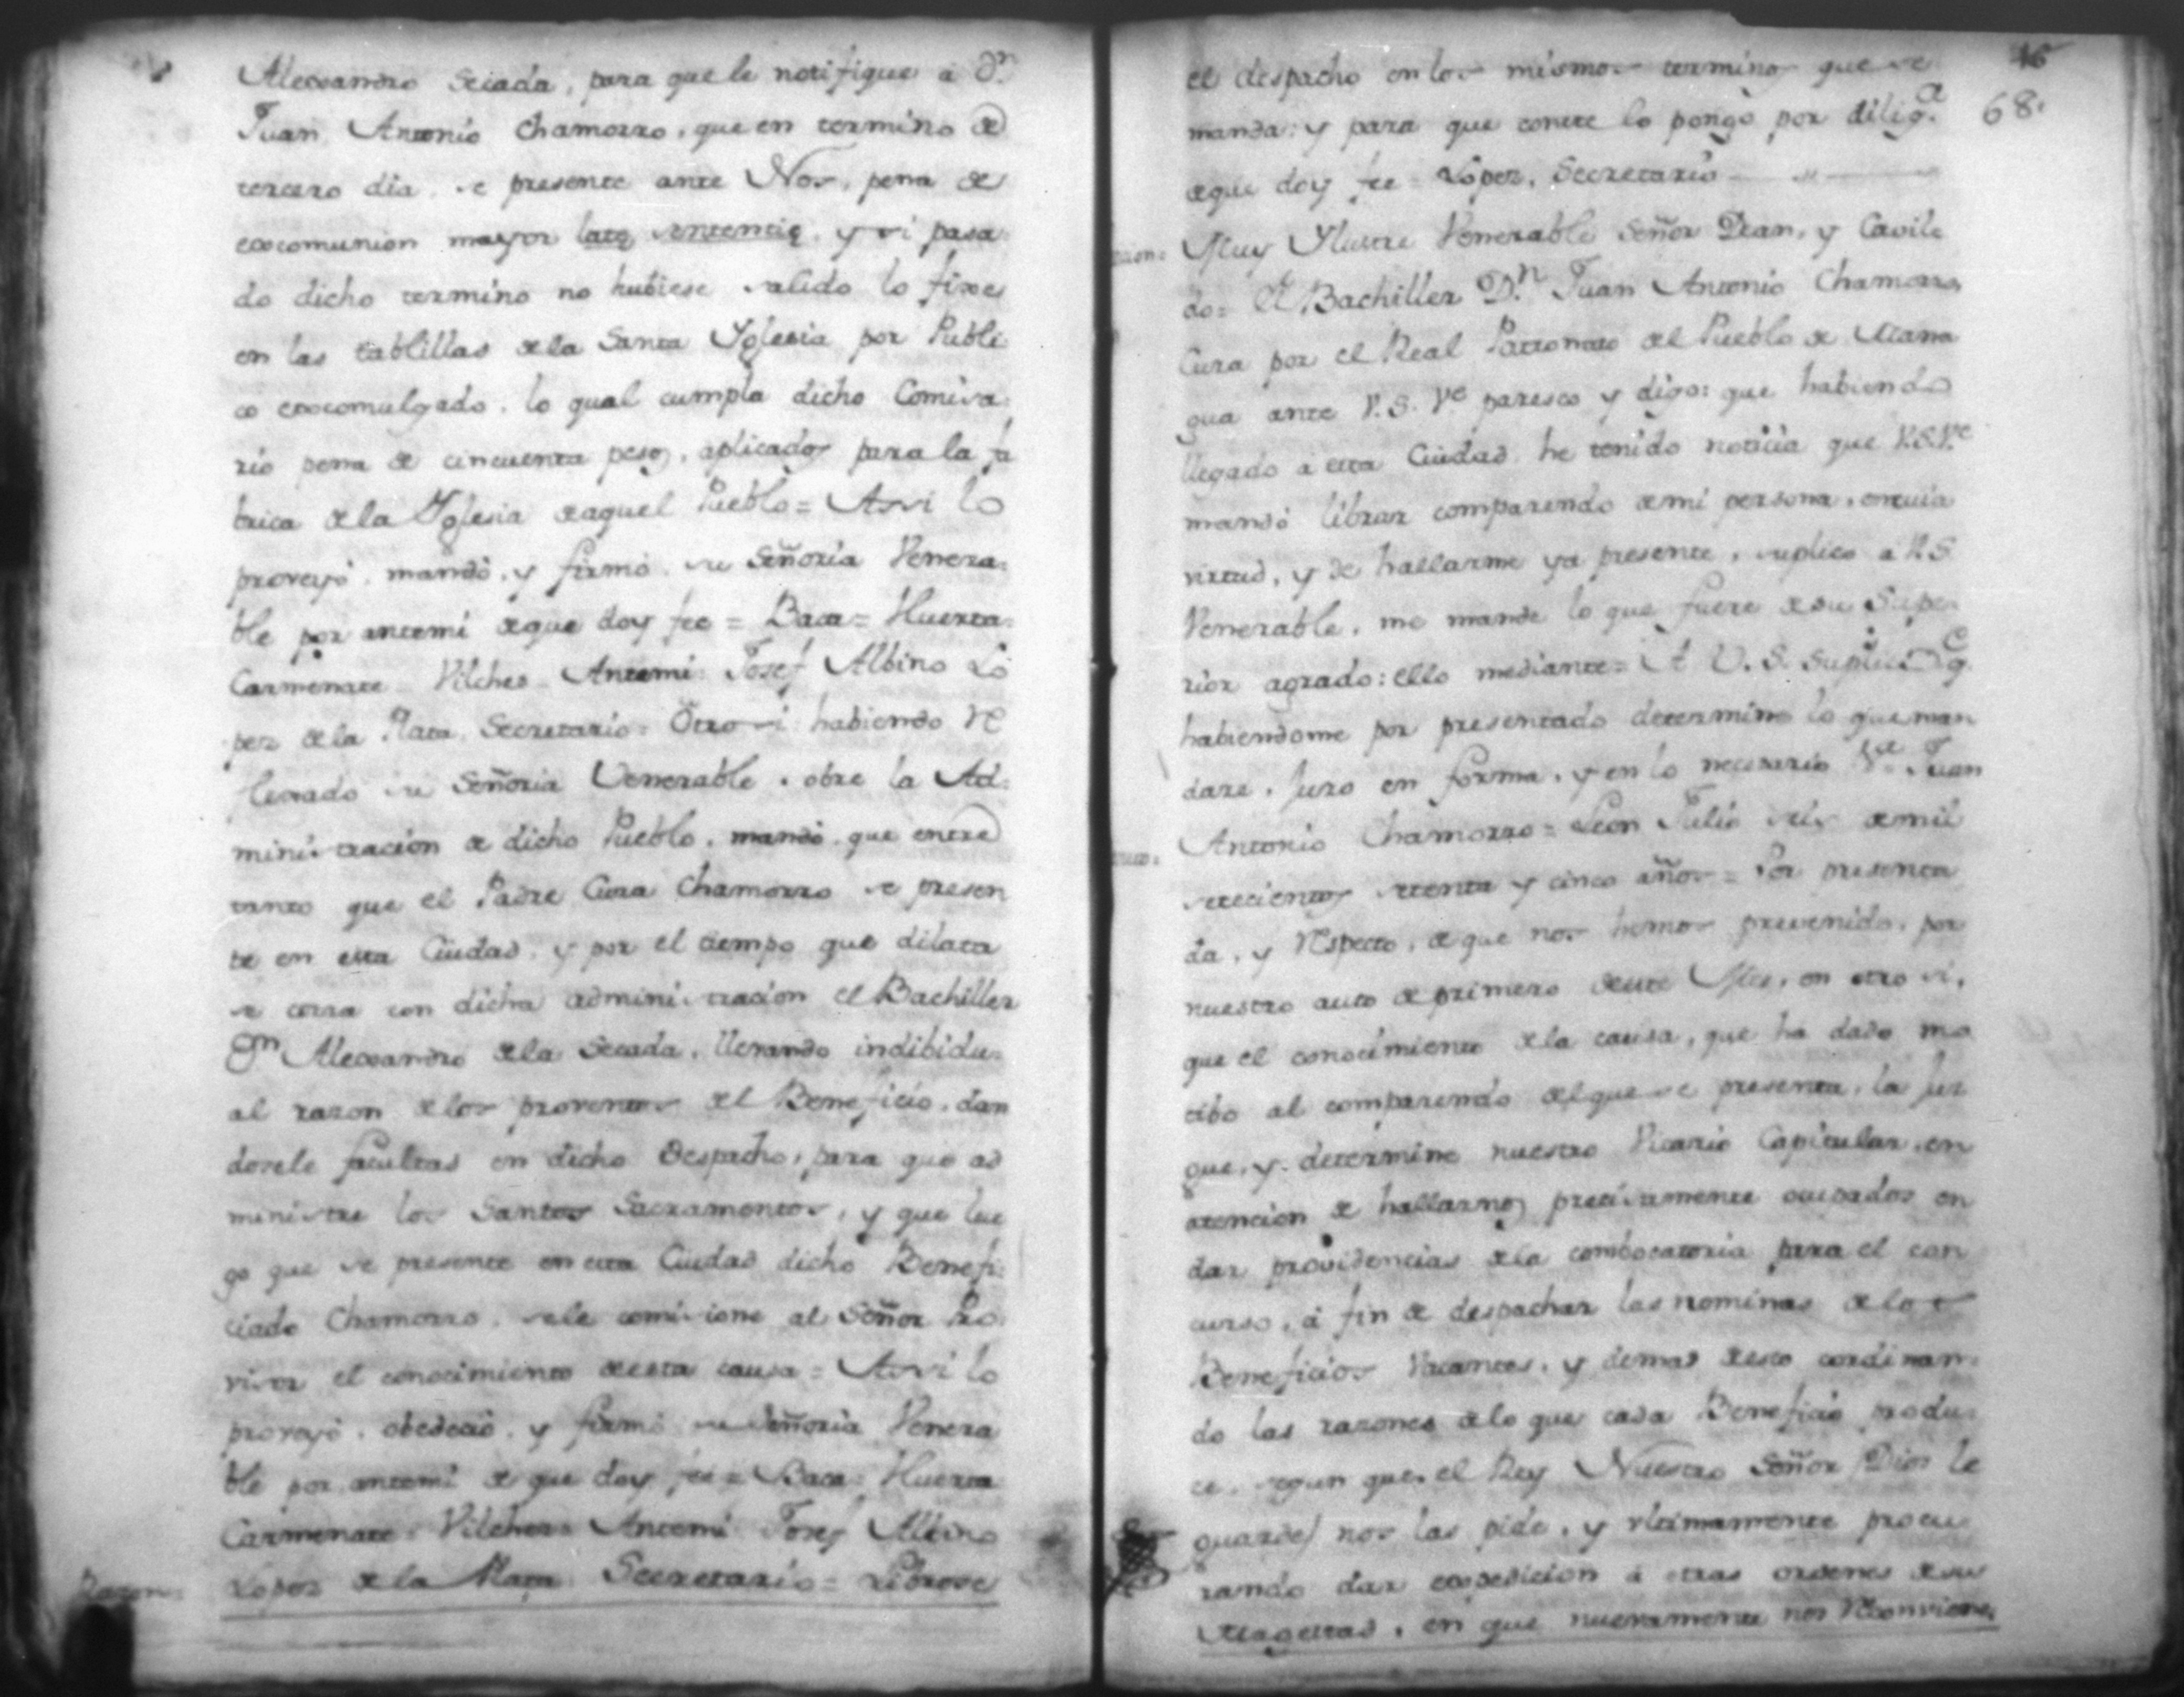 Alexandro Seciada, para que le notifique a Dn.
Juan Antonio Chamorro, que en termino de
tercero dia se presente ante Nos, pena de
excomunion mayor late sententie, y si pasa
do dicho termino no hubiese salido lo fixe
en las tablillas de la Santa Yglesia por Publi
co excomulgado. lo qual cumpla dicho Comisa=
rio pena de cincuenta pesos, aplicados para la fa
brica de la Yglesia de aquel Pueblo = Assi lo
proveyó, mandó, y firmó su Señoria Venera=
ble por antemi de que doy fee = Baca = Huerta=
Carmenate = Vilches = Antemi Josef Albino Lo
pez de la Plata, Secretario = Otro si habiendo re
flexado su Señoria Venerable, sobre la Ad=
ministracion de dicho Pueblo, mandó que entre
tanto que el Padre Cura Chamorro se presen
te en esta Ciudad, y por el tiempo que dilata
se corra con dicha administracion el Bachiller
Dn. Alexandro de la Secada, llevando indibidu=
al razon de los proventos del Beneficio, dan
dosele facultad en dicho Despacho, para que ad
ministre los Santos Sacramentos, y que lue
go que se presente en esta Ciudad dicho Benefi=
ciado Chamorro, se le comisione al Señor Pro
visor el conocimiento de esta causa = Assi lo
proveyó, obedeció, y firmó su Señoria Venera
ble por antemi de que doy fee = Baca = Huerta
Carmenate = Vilches = Antemi Josef Albino
Razon= Lopez de la Plata Secretario = Librose
16
el despacho en los mismos terminos que se
manda: y para que conste lo pongo por dilig.a 68.
de que doy fee = Lopez, Secretario
Muy Ylustre Venerable Señor Dean, y Cavil
do = El Bachiller Dn. Juan Antonio Chamorro,
Cura por el Real Patronato del Pueblo de Mana
gua ante V.S. Ve. paresco y digo: que habiendo
llegado á esta Ciudad he tenido noticia que V.S.Ve.
mandó librar comparendo de mi persona, en cuia
virtud, y de hallarme ya presente, suplico a V.S.
Venerable, me mande lo que fuere de su Supe=
rior agrado: ello mediante = A V.S. suplico q.
habiendome por presentado determine lo que man
dare. Juro en forma, y en lo necesario &a. Juan
Antonio Chamorro = Leon Julio seis de mil
setecientos setenta y cinco años = Por presenta
da, y respecto, de que nos hemos prevenido, por
nuestro auto de primero de este Mes, en otro si,
que el conocimiento de la causa, que ha dado mo
tibo al comparendo del que se presenta, la Juz
gue, y determine nuestro Vicario Capitular, en
atencion de hallarnos precisamente ocupados en
dar providencias de la combocatoria para el con
curso, á fin de despachar las nominas de los
Beneficios Vacantes, y demas de esto cordinan=
do las razones de lo que cada Beneficio produ=
ce, segun que el Rey Nuestro Señor (Dios le
guarde) nos las pide, y ultimamente procu=
rando dar expedicion á otras ordenes de su
Magestad, en que nuevamente nos reconviene,